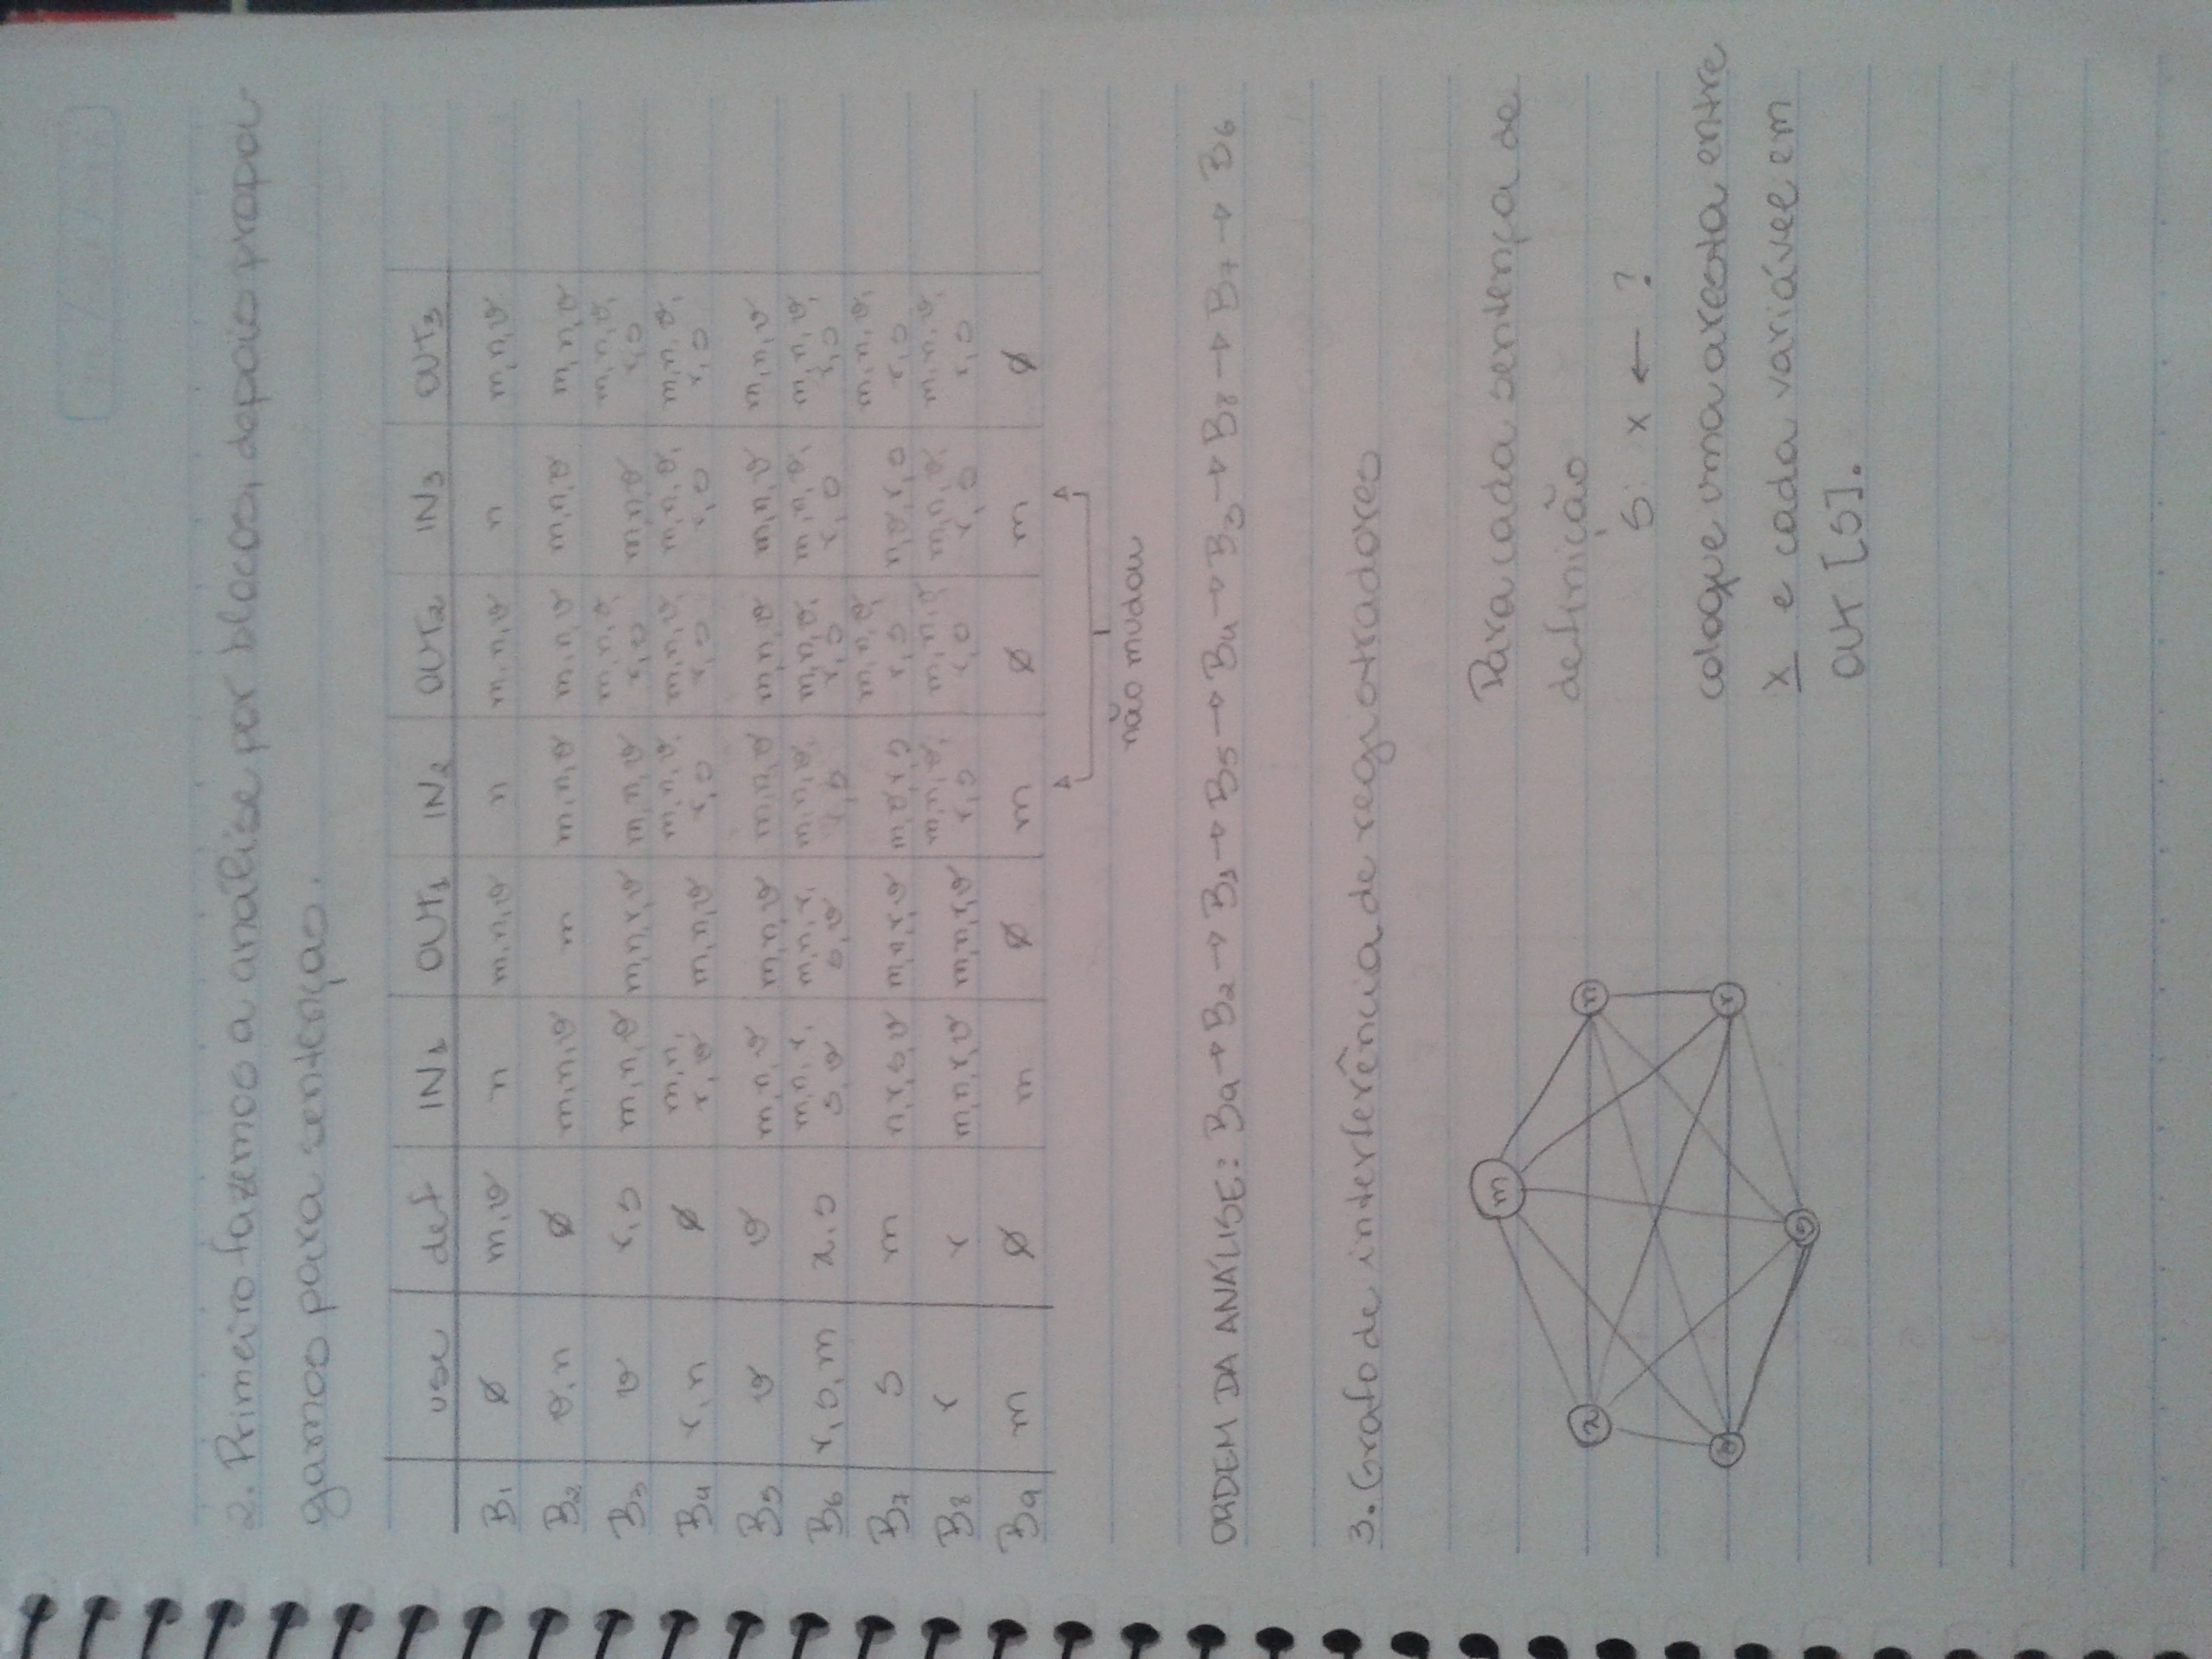 2. Primeiro fazemos a análise por blocos, depois propa-
gamos para sentenças.
use def IN1 OUT1 IN2 OUT2 IN3 OUT3
B1 ∅ m,v n m,n,v n m,n,v n m,n,v
B2 v,n ∅ m,n,v m m,n,v m,n,v m,n,v m,n,v
B3 v r,s m,n,v m,n,r,v m,n,v m,n,v,r,s m,n,v m,n,v,r,s
B4 r,n ∅ m,n,r,v m,n,v m,n,v,r,s m,n,v,r,s m,n,v,r,s m,n,v,r,s
B5 v v m,n,v m,n,v m,n,v m,n,v m,n,v m,n,v
B6 r,s,m x,s m,n,r,s,v m,n,r,s,v m,n,v,r,s m,n,v,r,s m,n,v,r,s m,n,v,r,s
B7 s m n,r,s,v m,n,r,v m,n,v,r,s n,v,r,s m,n,v,r,s
B8 r r m,n,r,v m,n,r,v m,n,v,r,s m,n,v,r,s m,n,v,r,s m,n,v,r,s
B9 m ∅ m ∅ m ∅ m ∅
não mudou
ORDEM DA ANÁLISE: B9 → B2 → B1 → B5 → B4 → B3 → B8 → B7 → B6
3. Grafo de interferência de registradores
m
x
n
v
r
s
Para cada sentença de
definição
S: x ← ?
coloque uma aresta entre
x e cada variável em
out [S].